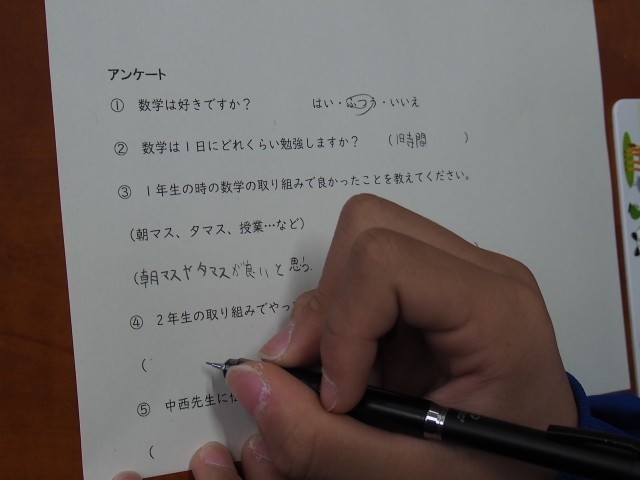 アンケート
① 数学は好きですか？ はい・ふつう・いいえ
② 数学は1日にどれくらい勉強しますか？ (1時間 )
③ 1年生の時の数学の取り組みで良かったことを教えてください。
(朝マス、タマス、授業…など)
(朝マスやタマスが良いと思う. )
④ 2年生の取り組みでやっ
(
⑤ 中西先生に
(